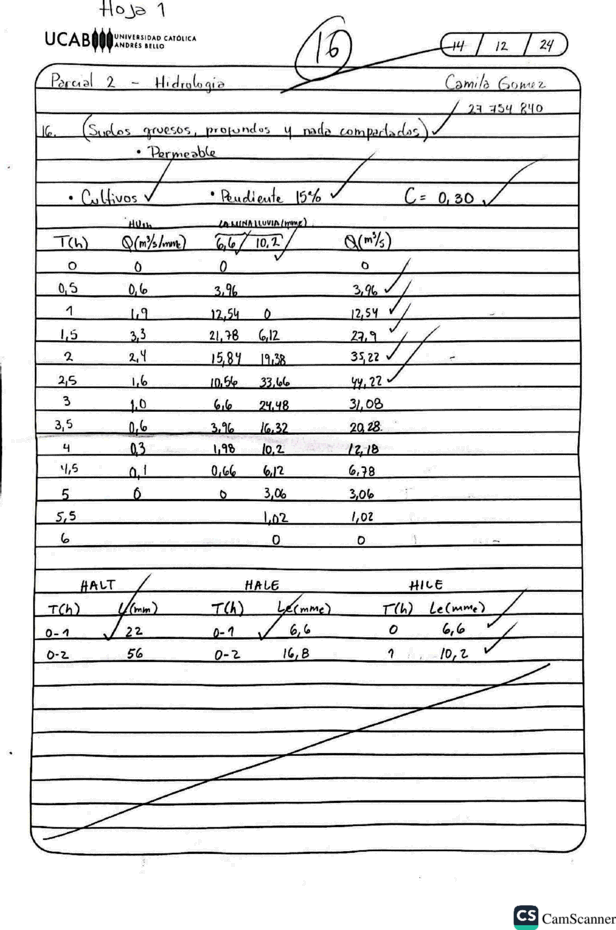 Hoja 1
UCAB UNIVERSIDAD CATÓLICA
ANDRÉS BELLO
16
14 / 12 / 24
Parcial 2 - Hidrologia Camila Gomez
27 754 840
16. (Suelos gruesos, profundos y nada compactados)
• Permeable
• Cultivos • Pendiente 15% C = 0,30
LAMINA LLUVIA (mme)
T(h) Q(m³/s/mme) 6,6 10,2 Q(m³/s)
0 0 0 0
0,5 0,6 3,96 3,96
1 1,9 12,54 0 12,54
1,5 3,3 21,78 6,12 27,9
2 2,4 15,84 19,38 35,22
2,5 1,6 10,56 33,66 44,22
3 1,0 6,6 24,48 31,08
3,5 0,6 3,96 16,32 20,28
4 0,3 1,98 10,2 12,18
4,5 0,1 0,66 6,12 6,78
5 0 0 3,06 3,06
5,5 1,02 1,02
6 0 0
HALT HALE HILE
T(h) L(mm) T(h) Le(mme) T(h) Le(mme)
0-1 22 0-1 6,6 0 6,6
0-2 56 0-2 16,8 1 10,2
CS CamScanner